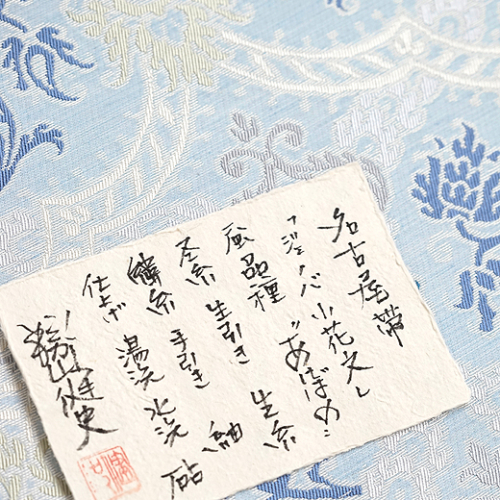 名古屋帯
「ジェノバ小花文」
蚕品種 "あけぼの"
経糸 生引き 生糸
緯糸 手引き 紬
仕上げ 湯洗 水洗 砧